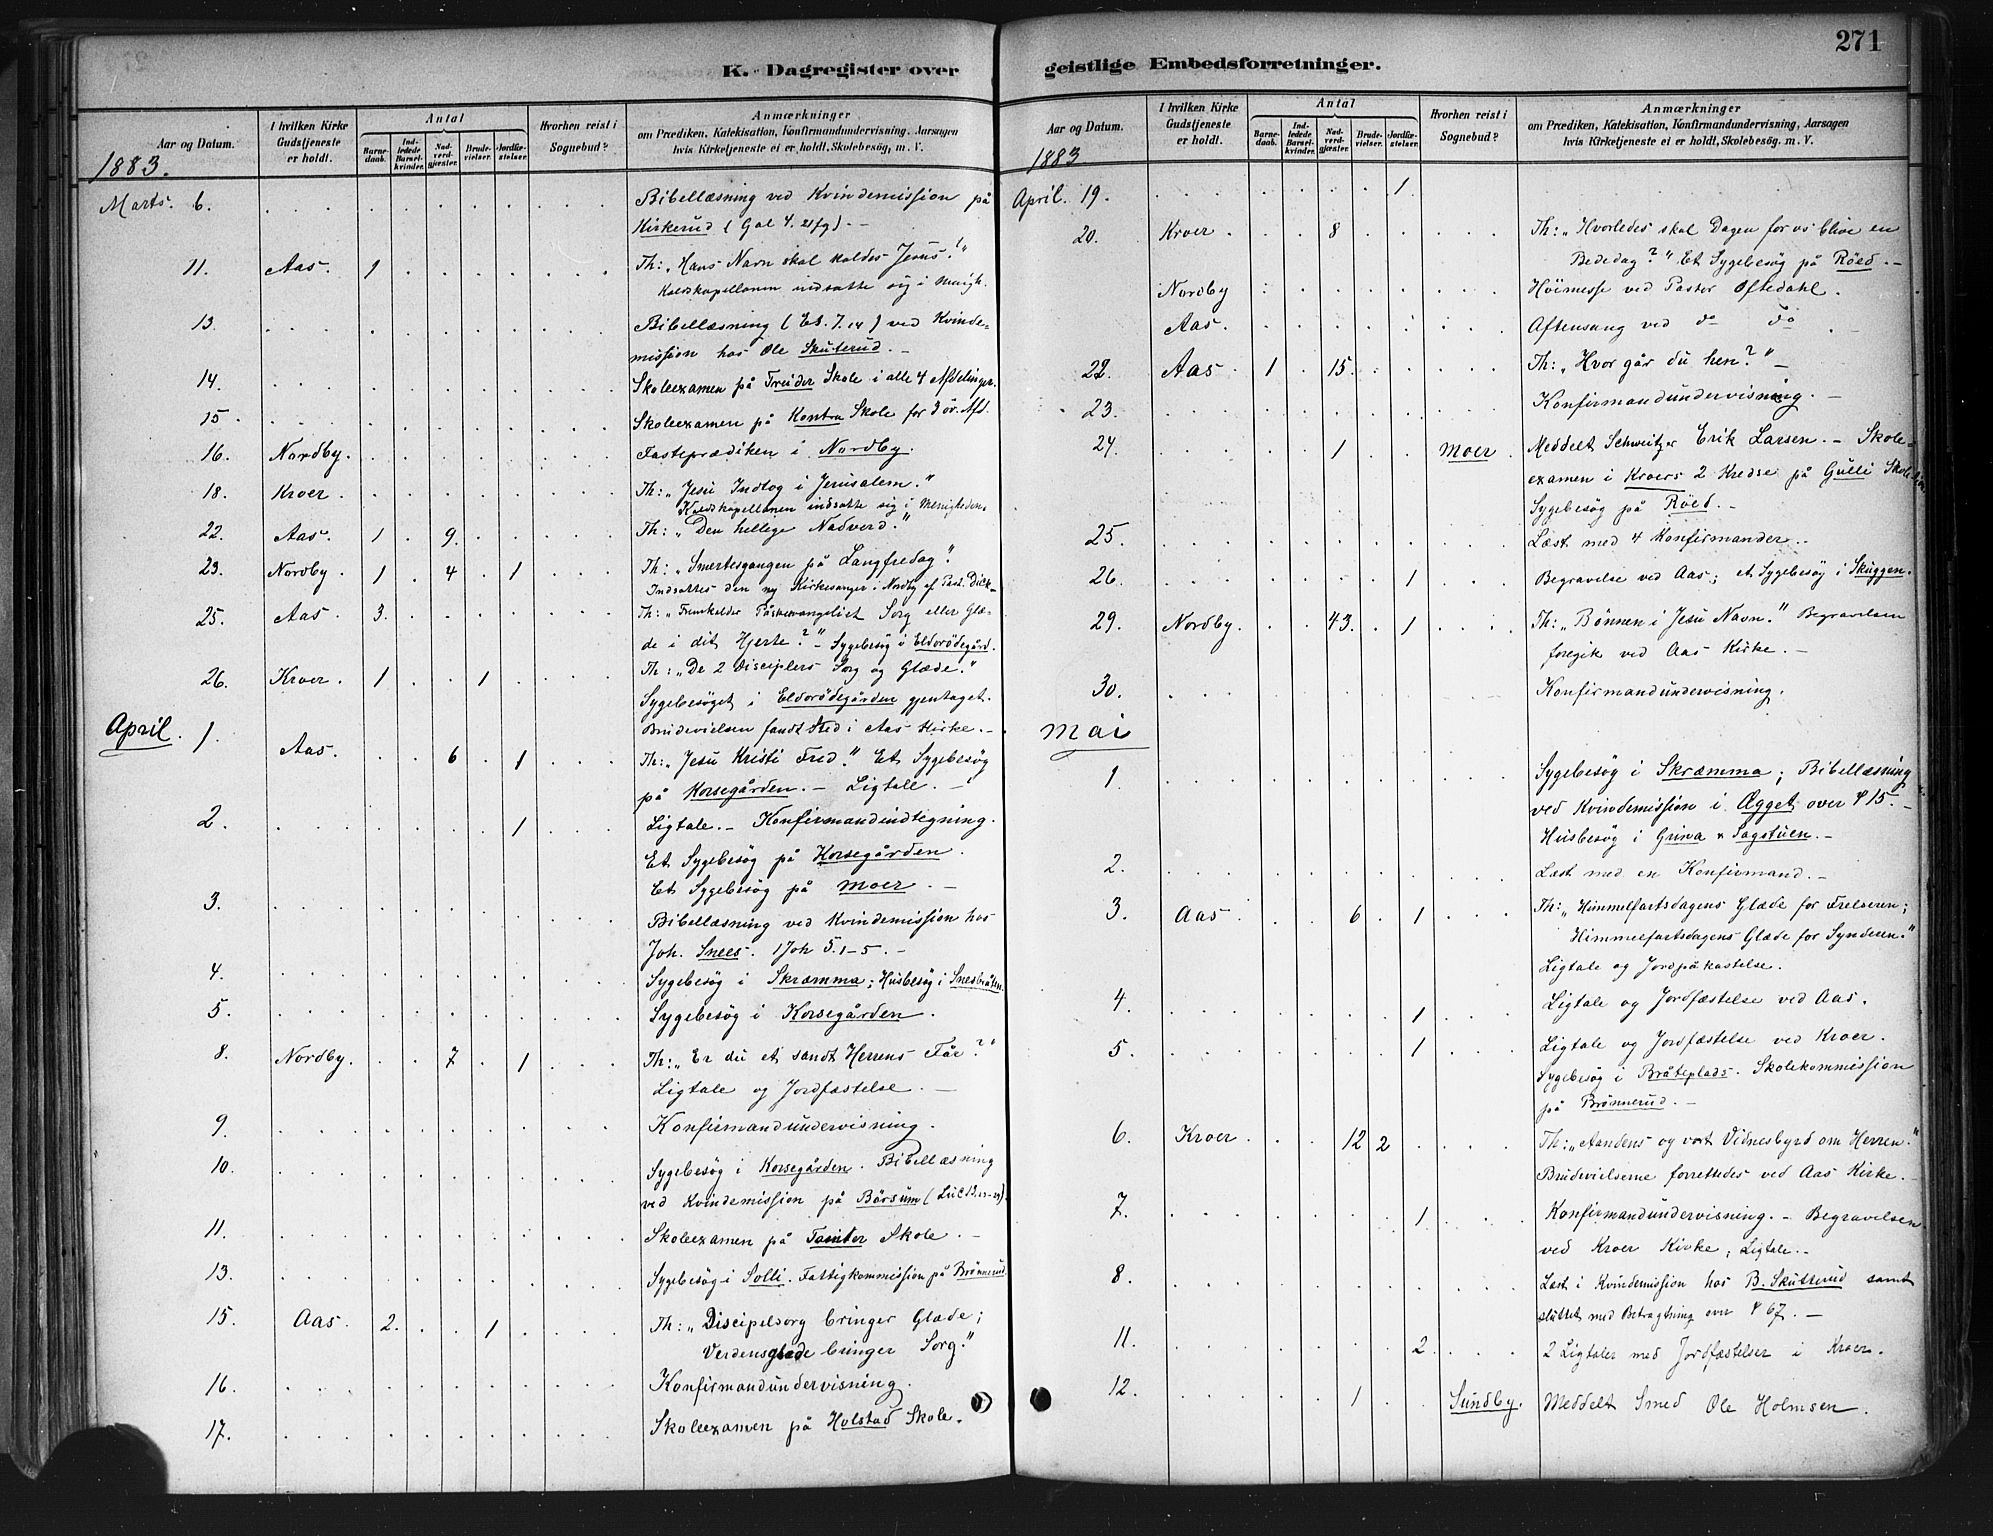 K. Dagregister over
Aar og Datum.
I hvilken Kirke Gudstjeneste er holdt.
Antal
Barnedaab.
Indledede Barselkvinder.
Nadverdgjester.
Brudevielser.
Jordfæstelser.
Hvorhen reist i Sognebud?
Anmærkninger
om Prædiken, Katekisation, Konfirmandundervisning, Aarsagen
hvis Kirketjeneste ei er holdt, Skolebesög, m. V.
1883.
Marts. 6. Bibellæsning ved Kvindemission på
Kirkerud (Gal 4. 21fg). –
11. Aas. 1 Th: „Hans Navn skal kaldes Jesus!"
Kaldskapellanen indsatte sig i Menigh.
13. Bibellæsning (Es. 7. 14) ved Kvinde-
mission hos Ole Skuterud. –
14. Skoleexamen på Treider Skole i alle 4 Afdelinger.
15. Skoleexamen på Kontra Skole for 3 öv. Afd.
16. Nordby. Fasteprædiken i Nordby.
18. Kroer. Th: „Jesu Indtog i Jerusalem."
Kaldskapellanen indsatte sig i Menigheden.
22. Aas. 1 9. Th: „Den hellige Nadverd."
23. Nordby. 1 4 1 Th: „Smertesgangen på Langfredag".
Indsattes den ny Kirkesanger i Nordby af Past. Dick-
25. Aas. 3. Th: „Fremkalder Påskeevangeliet Sorg eller Glæ-
de i dit Hjerte?" – Sygebesög i Eldorödegård.
26. Kroer. 1 1 Th: „De 2 Disciplers Sorg og Glæde."
Sygebesöget i Eldorödegården gjentaget.
Brudevielsen fandt Sted i Aas Kirke. –
April. 1. Aas. 6 1 Th: „Jesu Kristi Fred." Et Sygebesög
på Korsegården. – Ligtale. –
2. 1 Ligtale. – Konfirmandindtegning.
Et Sygebesög på Korsegården.
Et Sygebesög på Moer. –
3. Bibellæsning ved Kvindemission hos
Joh. Snees. 1 Joh 5. 1–5. –
4. Sygebesög i Skræmma; Husbesög i Snesbråten.
5. Sygebesög i Korsegården.
8. Nordby. 7 1 Th: „Er du et sandt Herrens Får?"
Ligtale og Jordfæstelse. –
9. Konfirmandundervisning.
10. Sygebesög i Korsegården. Bibellæsning
ved Kvindemission på Börsum (Luc 13.
11. Skoleexamen på Tomter Skole. –
13. Sygebesög i Solli. Fattigkommission på Brönnerud.
15. Aas. 2. 1 Th: „Discipelsorg bringer Glæde;
Verdensglæde bringer Sorg."
16. Konfirmandundervisning.
17. Skoleexamen på Holstad Skole.
271
geistlige Embedsforretninger.
Aar og Datum.
I hvilken Kirke Gudstjeneste er holdt.
Antal
Barnedaab.
Indledede Barselkvinder.
Nadverdgjester.
Brudevielser.
Jordfæstelser.
Hvorhen reist i Sognebud?
Anmærkninger
om Prædiken, Katekisation, Konfirmandundervisning, Aarsagen
hvis Kirketjeneste ei er holdt, Skolebesög, m. V.
1883
April. 19. 1
20. Kroer. 8 Th: „Hvorledes skal Dagen for os blive en
Bededag?" Et Sygebesög på Röed. –
Nordby Höimesse ved Pastor Oftedahl.
Aas. Aftensang ved do do
22. Aas. 1 15. Th: „Hvor går du hen?" –
23. Konfirmandundervisning. –
24. 1 Moer. Meddelt Schweitzer Erik Larsen. – Skole-
examen i Kroers 2 Kredse på Gulli Skole
Sygebesög på Röed. –
25. Læst med 4 Konfirmander. –
26. 1 Begravelse ved Aas; et Sygebesög i Skuggen.
29. Nordby. 43. 1 Th: „Bönnen i Jesu Navn." Begravelsen
foregik ved Aas Kirke. –
30. Konfirmandundervisning.
Mai
1 Sygebesög i Skræmma; Bibellæsning
ved Kvindemission i Ægget over ψ 15. –
Husbesög i Grina & Sagstuen. –
2. Læst med en Konfirmand. –
3. Aas. 6 1 Th: „Himmelfartsdagens Glæde for Frelseren;
Himmelfartsdagens Glæde for Synderen."
Ligtale og Jordpåkastelse.
4. 1 Ligtale og Jordfæstelse ved Aas.
5. 1 Ligtale og Jordfæstelse ved Kroer.
Sygebesög i Bråteplads. Skolekommission
på Brönnerud. –
6. Kroer. 12 2 Th: „Aandens og vort Vidnesbyrd om Herren."
Brudevielserne forrettedes ved Aas Kirke. –
7. 1 Konfirmandundervisning. – Begravelsen
ved Kroer Kirke; Ligtale. –
8. Læst i Kvindemission hos B. Skutterud samt
sluttet med Betragtning over ψ 67. –
11. 2 2 Ligtaler med Jordfæstelser i Kroer.
12. 1 Sundby. Meddelt Smed Ole Holmsen.